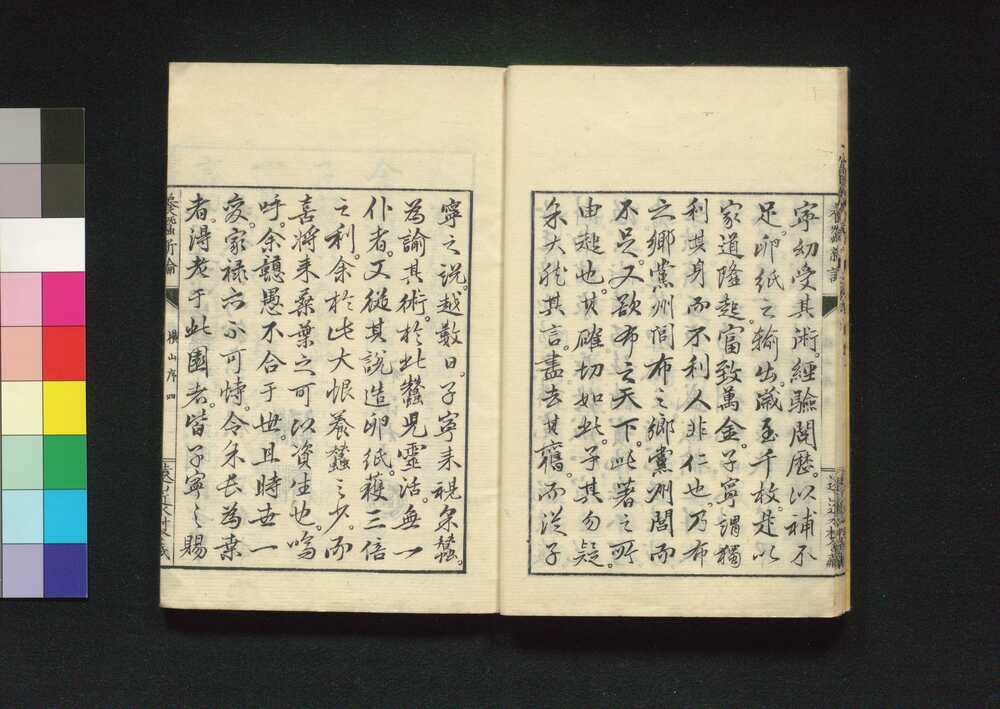 寧幼受其術。經驗閱歷。以補不
足。卵紙之輸出。歲至千枚。是以
家道隆起。富致萬金。子寧謂獨
利其身而不利人非仁也。乃布
之鄉黨州閭。布之鄉黨州閭而
不足。又欲布之天下。此著之所
由起也。其確切如此。子其勿疑。
余大然其言。盡去其舊。而從子
寧之說。越數日。子寧來視余蠶。
為諭其術。於此蠶兒靈活。無一
仆者。又從其說造卵紙。獲三倍
之利。余於此大恨養蠶之少。而
喜將來桑葉之可以資生也。嗚
呼。余戇愚不合于世。且時世一
變。家祿亦不可恃。令余長為桑
者。得老于此園者。皆子寧之賜
養蠶新論
橫山序 四